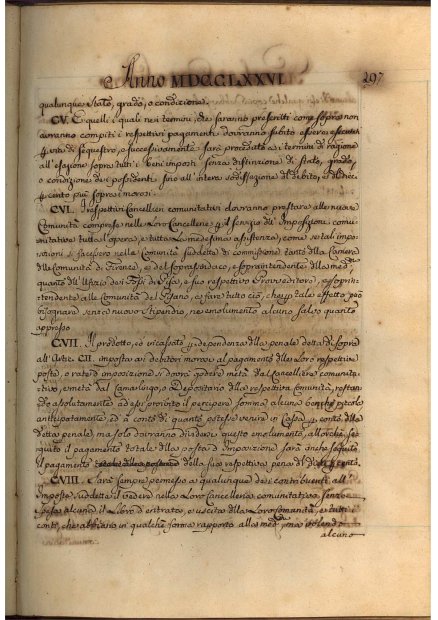 Anno MDCCLXXVI. 297
qualunque stato, grado, o condizione.
CV. E quelli i quali nei termini, che saranno prescritti come sopra non
avranno compiti i respettivi pagamenti dovranno subito essere esecutati
vita di sequestro, e successivamente sarà proceduto ai termini di ragione
all'esazione sopra tutti i beni imposti senza distinzione di stato, grado,
o condizione dei possidenti fino all'intera sodisfazione del debito, e
cento più sopra i morosi.
CVI. I respettivi Cancellieri comunitativi dovranno prestare alle nuove
Comunità comprese nelle loro Cancellerie il servizio dell'Imposizione comu-
nitativa tutta l'opera, e tutta la medesima assistenza, come se tali impo-
sizioni si facessero nelle Comunità suddette di commissione tanto della Camera
delle Comunità di Firenze, e del soprassindaco, e soprintendente della med.
quanto dell'Ufizio dei Fossi di Pisa, e suo respettivo Provveditore, e soprin-
tendente alle Comunità del Pisano, e fare tutto ciò, che tale effetto
bisognare senza nuovo stipendio, nè emolumento alcuno salvo quanto
appresso
CVII. Il prodotto, ed incassato dipendenza della penale detta di sopra
all'Artic. CII. imposta ai debitori morosi al pagamento delle loro respettive
poste, o rate d'imposizione si dovrà godere metà dal Cancelliere comunita-
tivo, e metà dal Camarlingo, o Depositario della respettiva comunità, restan-
do assolutamente ad essi proibito il percipere somma alcuna benchè
anticipatamente, ed a conto di quanto potesse venire in Cassa conto della
detta penale, ma solo dovranno dividersi questo emolumento, allorchè se-
guito il pagamento totale della posta d'Imposizione sarà anche seguito
il pagamento della sua respettiva pena del dieci cento.
CVIII. E sarà sempre permesso a qualunque dei contribuenti all'
Imposte suddette il vedere nella loro Cancelleria comunitativa senza
spesa alcuna il Libro d'entrata, e uscita della loro Comunità, e tutti i
conti, che abbiano in qualche forma rapporto alla med. ma volendo
alcuno